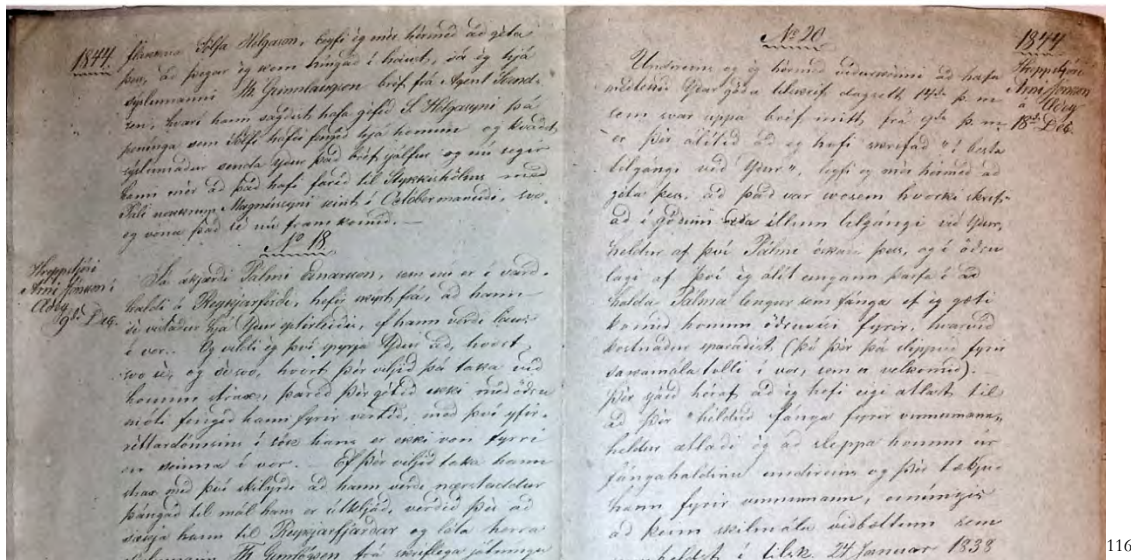 1844.
flamenn Tolfa Helgason, leyfi eg mér hérmed ad géta
þess, ad þegar eg kom hingad í haust, sá eg hjá
sýslumanni Th Gunnlaugsen bréf frá Agent
sen, hvari hann sagdist hafa gefid S. Helgasyni þá
peninga sem Tolfi hafdi fengid hjá honum og kvadst
sýslumadur senda ydur þad bréf sjálfur og nú segir
hann mér ad þad hafi farid til Stykkishólms med
Páli Magnússyni seint í Octobermánudi, svo
eg vona þad sé nú framkomid. —
No 18.
Hreppstjóri
Arni Jónson í
Adey.
9da Des.
Sá ákjærdi Pálmi Einarsson, sem nú er í vard-
haldi á Reykjarfirdi, hefir skýrt frá, ad hann
sé vistadur hjá Ydur eptirleidis, ef hann verdi laus
í vor. Eg vildi eg því spyrja Ydur ad, hvort
svo sé, og sé svo, hvort þér viljid þá taka vid
honum strax, þared þér gétid ekki med ödru
móti fengid hann fyrir vertíd, med því yfir-
réttardómsins í sök hans er ekki von fyrri
en seinna í vor. — Ef þér viljid taka hann
strax med því skilyrdi ad hann verdi næstaddur
þángad til mál hans er útkljád, verdid þér ad
sækja hann til Reykjarfjardar og láta herra
sýslumann Th Gunnlögsen fá skriflega játníngu
No 20
1844
Hreppstjóri
Arni Jónson
á
Adey
18da Des.
Undireins og eg hérmed vidurkénni ad hafa
medtekid Ydar góda tilskrif dagsett 14da þ. m
sem svar uppá bréf mitt frá 9da þ. m.
er þér álítid ad eg hafi skrifad "í besta
tilgángi vid Ydur", leyfi eg mér hérmed ad
géta þess, ad þad var hvorki skrif-
ad í gódum eda illum tilgángi vid Ydur,
heldur af því Pálmi óskadi þess, og í ödru
lagi af því eg álít eingann þarfa í ad
halda Pálma lengur sem fánga ef eg gæti
komid honum ödruvísi fyrir, hvarvid
kostnadur sparadist (þó þér þá sleppid fyrir
sakamála tolli í vor, sem er velkomid). —
Þér sjáid héraf ad eg hefi eigi ætlast til
ad þér "héldud fánga fyrir vinnumann,
heldur ætladi eg ad sleppa honum úr
fángahaldinu undireins og þér tækjud
hann fyrir vinnumann, einúngis
ad þeim skilmála vidbættum sem
í tilsk. 24 Januar 1838
116